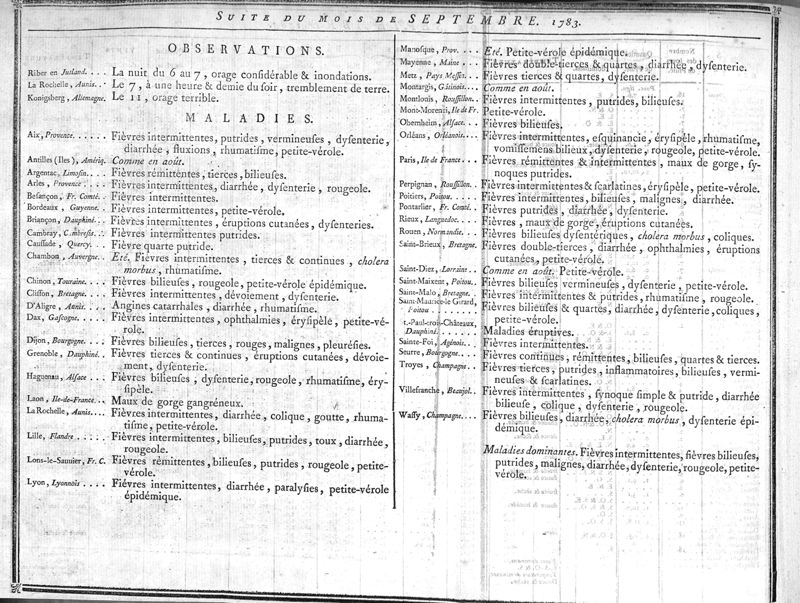 SUITE DU MOIS DE SEPTEMBRE. 1783.
OBSERVATIONS.
Riber en Jutland.... La nuit du 6 au 7, orage conſidérable & inondations.
La Rochelle, Aunis.. Le 7, à une heure & demie du ſoir, tremblement de terre.
Konigsberg, Allemagne. Le 11, orage terrible.
MALADIES.
Aix, Provence...... Fièvres intermittentes, putrides, vermineuſes, dyſenterie,
diarrhée, fluxions, rhumatiſme, petite-vérole.
Antilles (Iles), Amériq. Comme en août.
Argentac, Limoſin.... Fièvres rémittentes, tierces, bilieuſes.
Arles, Provence.... Fièvres intermittentes, diarrhée, dyſenterie, rougeole.
Beſançon, Fr. Comté. Fièvres intermittentes.
Bordeaux, Guyenne. Fièvres intermittentes, petite-vérole.
Briançon, Dauphiné.. Fièvres intermittentes, éruptions cutanées, dyſenteries.
Cambray, Cambreſis.. Fièvres intermittentes putrides.
Cauſſade, Quercy... Fièvre quarte putride.
Chambon, Auvergne. Eté. Fièvres intermittentes, tierces & continues, cholera
morbus, rhumatiſme.
Chinon, Touraine... Fièvres bilieuſes, rougeole, petite-vérole épidémique.
Cliſſon, Bretagne.... Fièvres intermittentes, dévoiement, dyſenterie.
D'Aligre, Aunis.... Angines catarrhales, diarrhée, rhumatiſme.
Dax, Gaſcogne.... Fièvres intermittentes, ophthalmies, éryſipèle, petite-vé-
role.
Dijon, Bourgogne.... Fièvres bilieuſes, tierces, rouges, malignes, pleuréſies.
Grenoble, Dauphiné.. Fièvres tierces & continues, éruptions cutanées, dévoie-
ment, dyſenterie.
Haguenau, Alſace... Fièvres bilieuſes, dyſenterie, rougeole, rhumatiſme, éry-
ſipèle.
Laon, Ile-de-France.. Maux de gorge gangréneux.
La Rochelle, Aunis.... Fièvres intermittentes, diarrhée, colique, goutte, rhuma-
tiſme, petite-vérole.
Lille, Flandre...... Fièvres intermittentes, bilieuſes, putrides, toux, diarrhée,
rougeole.
Lons-le-Saunier, Fr. C. Fièvres rémittentes, bilieuſes, putrides, rougeole, petite-
vérole.
Lyon, Lyonnois.... Fièvres intermittentes, diarrhée, paralyſies, petite-vérole
épidémique.
Manoſque, Prov.... Eté. Petite-vérole épidémique.
Mayenne, Maine... Fièvres double-tierces & quartes, diarrhée, dyſenterie.
Metz, Pays Meſſin.. Fièvres tierces & quartes, dyſenterie.
Montargis, Gâtinois.. Comme en août.
Montlouis, Rouſſillon. Fièvres intermittentes, putrides, bilieuſes.
Mont-Morenci, Ile de Fr. Petite-vérole.
Obernheim, Alſace.. Fièvres bilieuſes.
Orléans, Orléanois... Fièvres intermittentes, eſquinancie, éryſipèle, rhumatiſme,
vomiſſemens bilieux, dyſenterie, rougeole, petite-vérole.
Paris, Ile de France... Fièvres rémittentes & intermittentes, maux de gorge, ſy-
noques putrides.
Perpignan, Rouſſillon. Fièvres intermittentes & ſcarlatines, éryſipèle, petite-vérole.
Poitiers, Poitou.... Fièvres intermittentes, bilieuſes, malignes, diarrhée.
Pontarlier, Fr. Comté. Fièvres putrides, diarrhée, dyſenterie.
Rieux, Languedoc... Fièvres, maux de gorge, éruptions cutanées.
Rouen, Normandie.. Fièvres bilieuſes dyſentériques, cholera morbus, coliques.
Saint-Brieux, Bretagne. Fièvres double-tierces, diarrhée, ophthalmies, éruptions
cutanées, petite-vérole.
Saint-Diez, Lorraine.. Comme en août. Petite-vérole.
Saint-Maixent, Poitou.. Fièvres bilieuſes vermineuſes, dyſenterie, petite-vérole.
Saint-Malo, Bretagne. Fièvres intermittentes & putrides, rhumatiſme, rougeole.
Saint-Maurice-le Girard,
Poitou.... Fièvres bilieuſes & quartes, diarrhée, dyſenterie, coliques,
petite-vérole.
t.-Paul-trois-Châteaux,
Dauphiné.... Maladies éruptives.
Sainte-Foi, Agénois.. Fièvres intermittentes.
Seurre, Bourgogne... Fièvres continues, rémittentes, bilieuſes, quartes & tierces.
Troyes, Champagne.. Fièvres tierces, putrides, inflammatoires, bilieuſes, vermi-
neuſes & ſcarlatines.
Villefranche, Beaujol.. Fièvres intermittentes, ſynoque ſimple & putride, diarrhée
bilieuſe, colique, dyſenterie, rougeole.
Waſſy, Champagne.... Fièvres bilieuſes, diarrhée, cholera morbus, dyſenterie épi-
démique.
Maladies dominantes. Fièvres intermittentes, fièvres bilieuſes,
putrides, malignes, diarrhée, dyſenterie, rougeole, petite-
vérole.